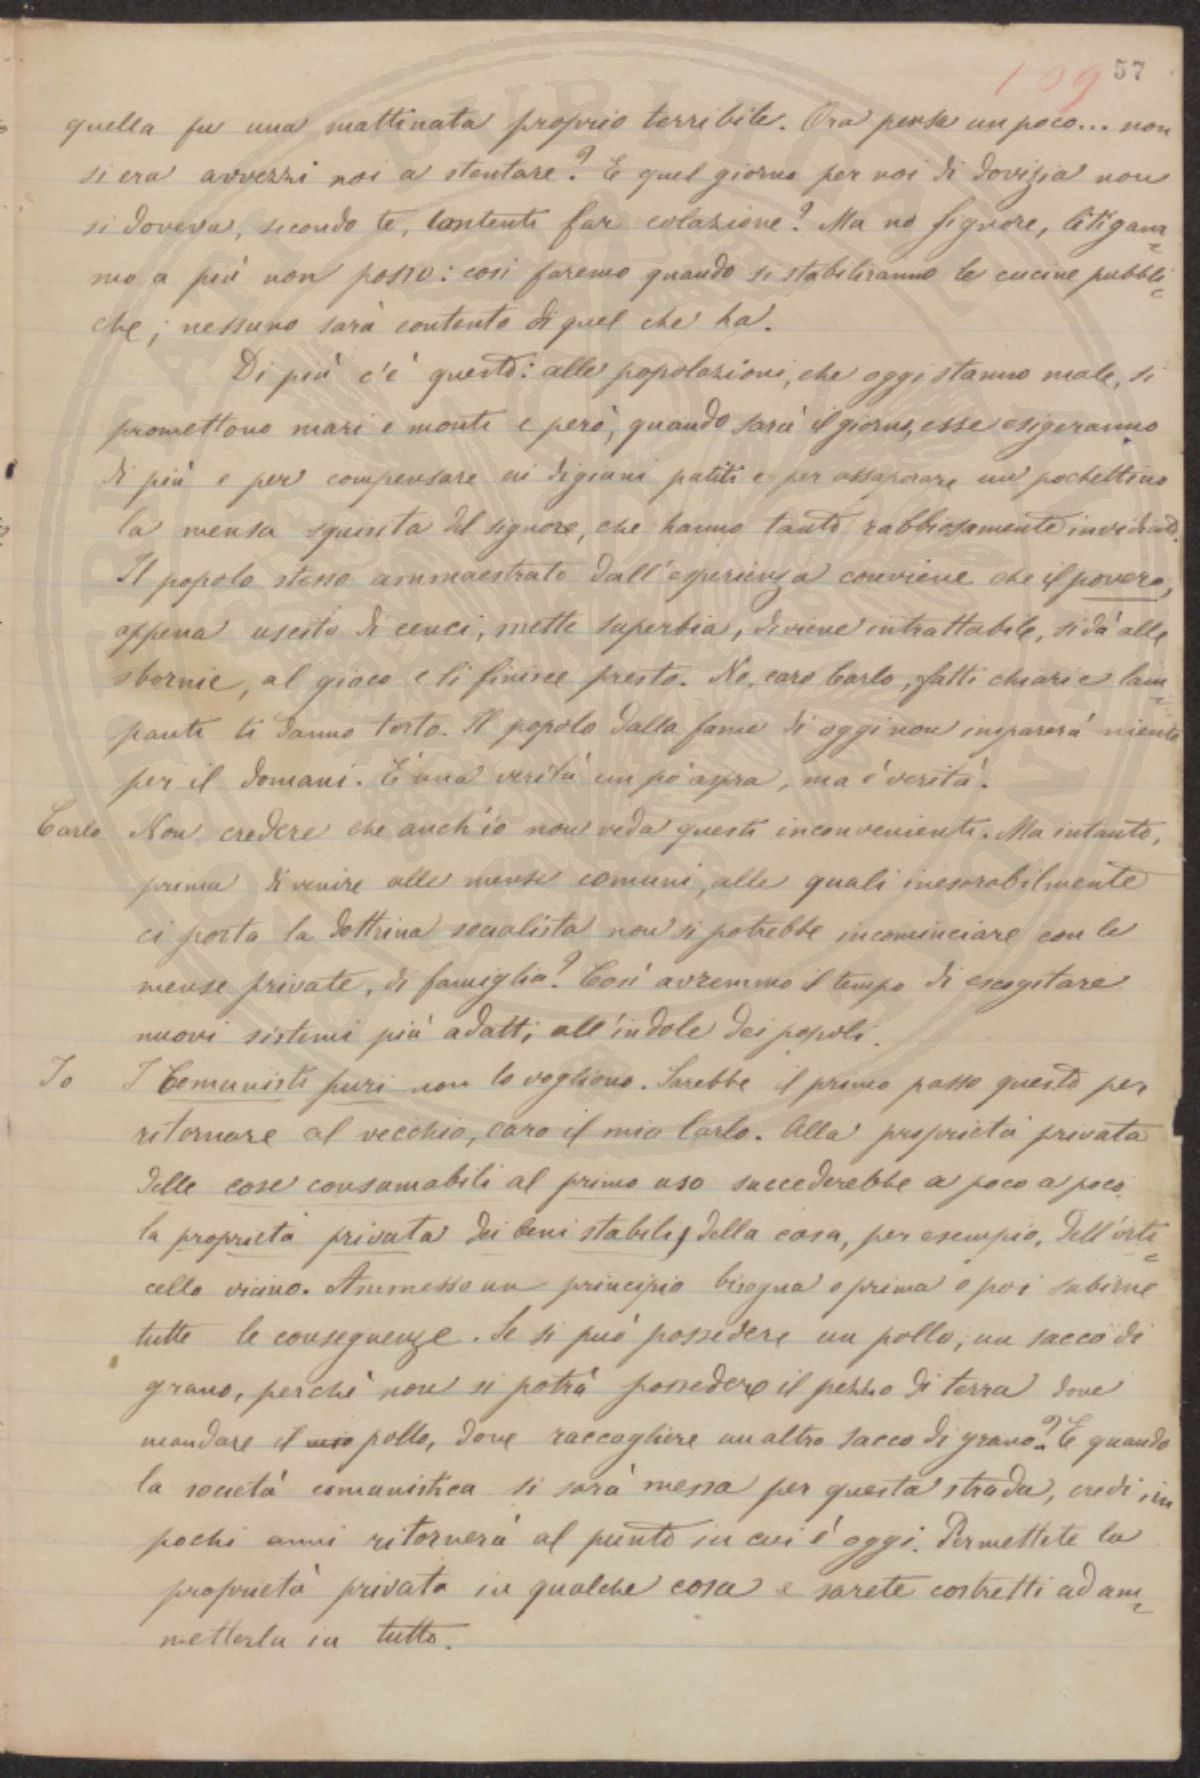 109 57
quella fu una mattinata proprio terribile. Ora pensa un poco... non
si era avvezzi noi a stentare? E quel giorno per noi di dovizia non
si doveva, secondo te, contenti far colazione? Ma no signore, litigam=
mo a più non posso: così faremo quando si stabiliranno le cucine pubbli=
che; nessuno sarà contento di quel che ha.
Di più c'è questo: alle popolazioni, che oggi stanno male, si
promettono mari e monti e però, quando sarà il giorno, esse esigeranno
di più e per compensare ai digiuni patiti e per assaporare un pochettino
la mensa squisita del signore, che hanno tanto rabbiosamente invidiato.
Il popolo stesso ammaestrato dall'esperienza conviene che il povero,
appena uscito di cenci, mette superbia, diviene intrattabile, si dà alle
sbornie, al gioco e li finisce presto. No, caro Carlo, fatti chiari e lam=
panti ti danno torto. Il popolo dalla fame di oggi non imparerà niente
per il domani. E' una verità un po' aspra, ma è verità.
Carlo Non credere che anch'io non veda questi inconvenienti. Ma intanto,
prima di venire alle mense comuni, alle quali inesorabilmente
ci porta la dottrina socialista non si potrebbe incominciare con le
mense private, di famiglia? Così avremmo il tempo di escogitare
nuovi sistemi più adatti all'indole dei popoli.
Io I Comunisti puri non lo vogliono. Sarebbe il primo passo questo per
ritornare al vecchio, caro il mio Carlo. Alla proprietà privata
delle cose consumabili al primo uso succederebbe a poco a poco
la proprietà privata dei beni stabili, della casa, per esempio, dell'orti=
cello vicino. Ammesso un principio bisogna o prima o poi subirne
tutte le conseguenze. Se si può possedere un pollo, un sacco di
grano, perchè non si potrà possedere il pezzo di terra dove
mandare il mio pollo, dove raccogliere un altro sacco di grano? E quando
la società comunistica si sarà messa per questa strada, credi, in
pochi anni ritornerà al punto in cui è oggi. Permettete la
proprietà privata in qualche cosa e sarete costretti ad am=
metterla in tutto.